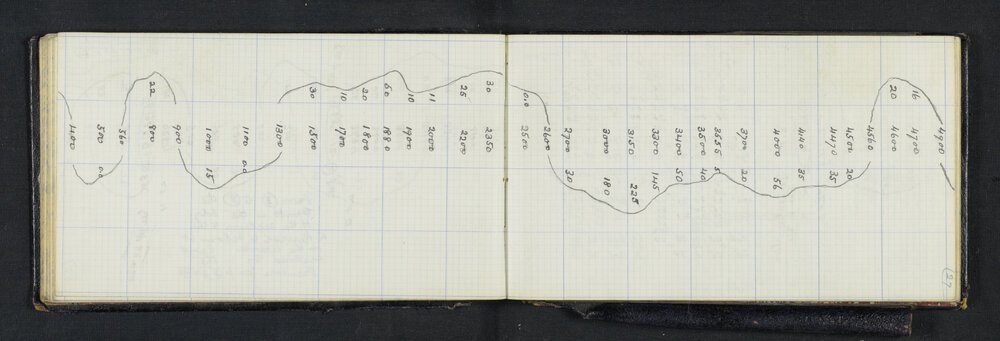 27
4900
16 4700
20 4600
4560
4500 20
4470 35
4140 35
4000 56
3700 20
3555 5
3500 40
3400 50
3300 145
3150 225
3000 180
2700 30
2600
0.0 2500
30 2350
25 2200
11 2000
10 1900
50 1880
20 1800
10 1700
30 1500
1300
1100 00
1000 15
900
22 800
560
500 00